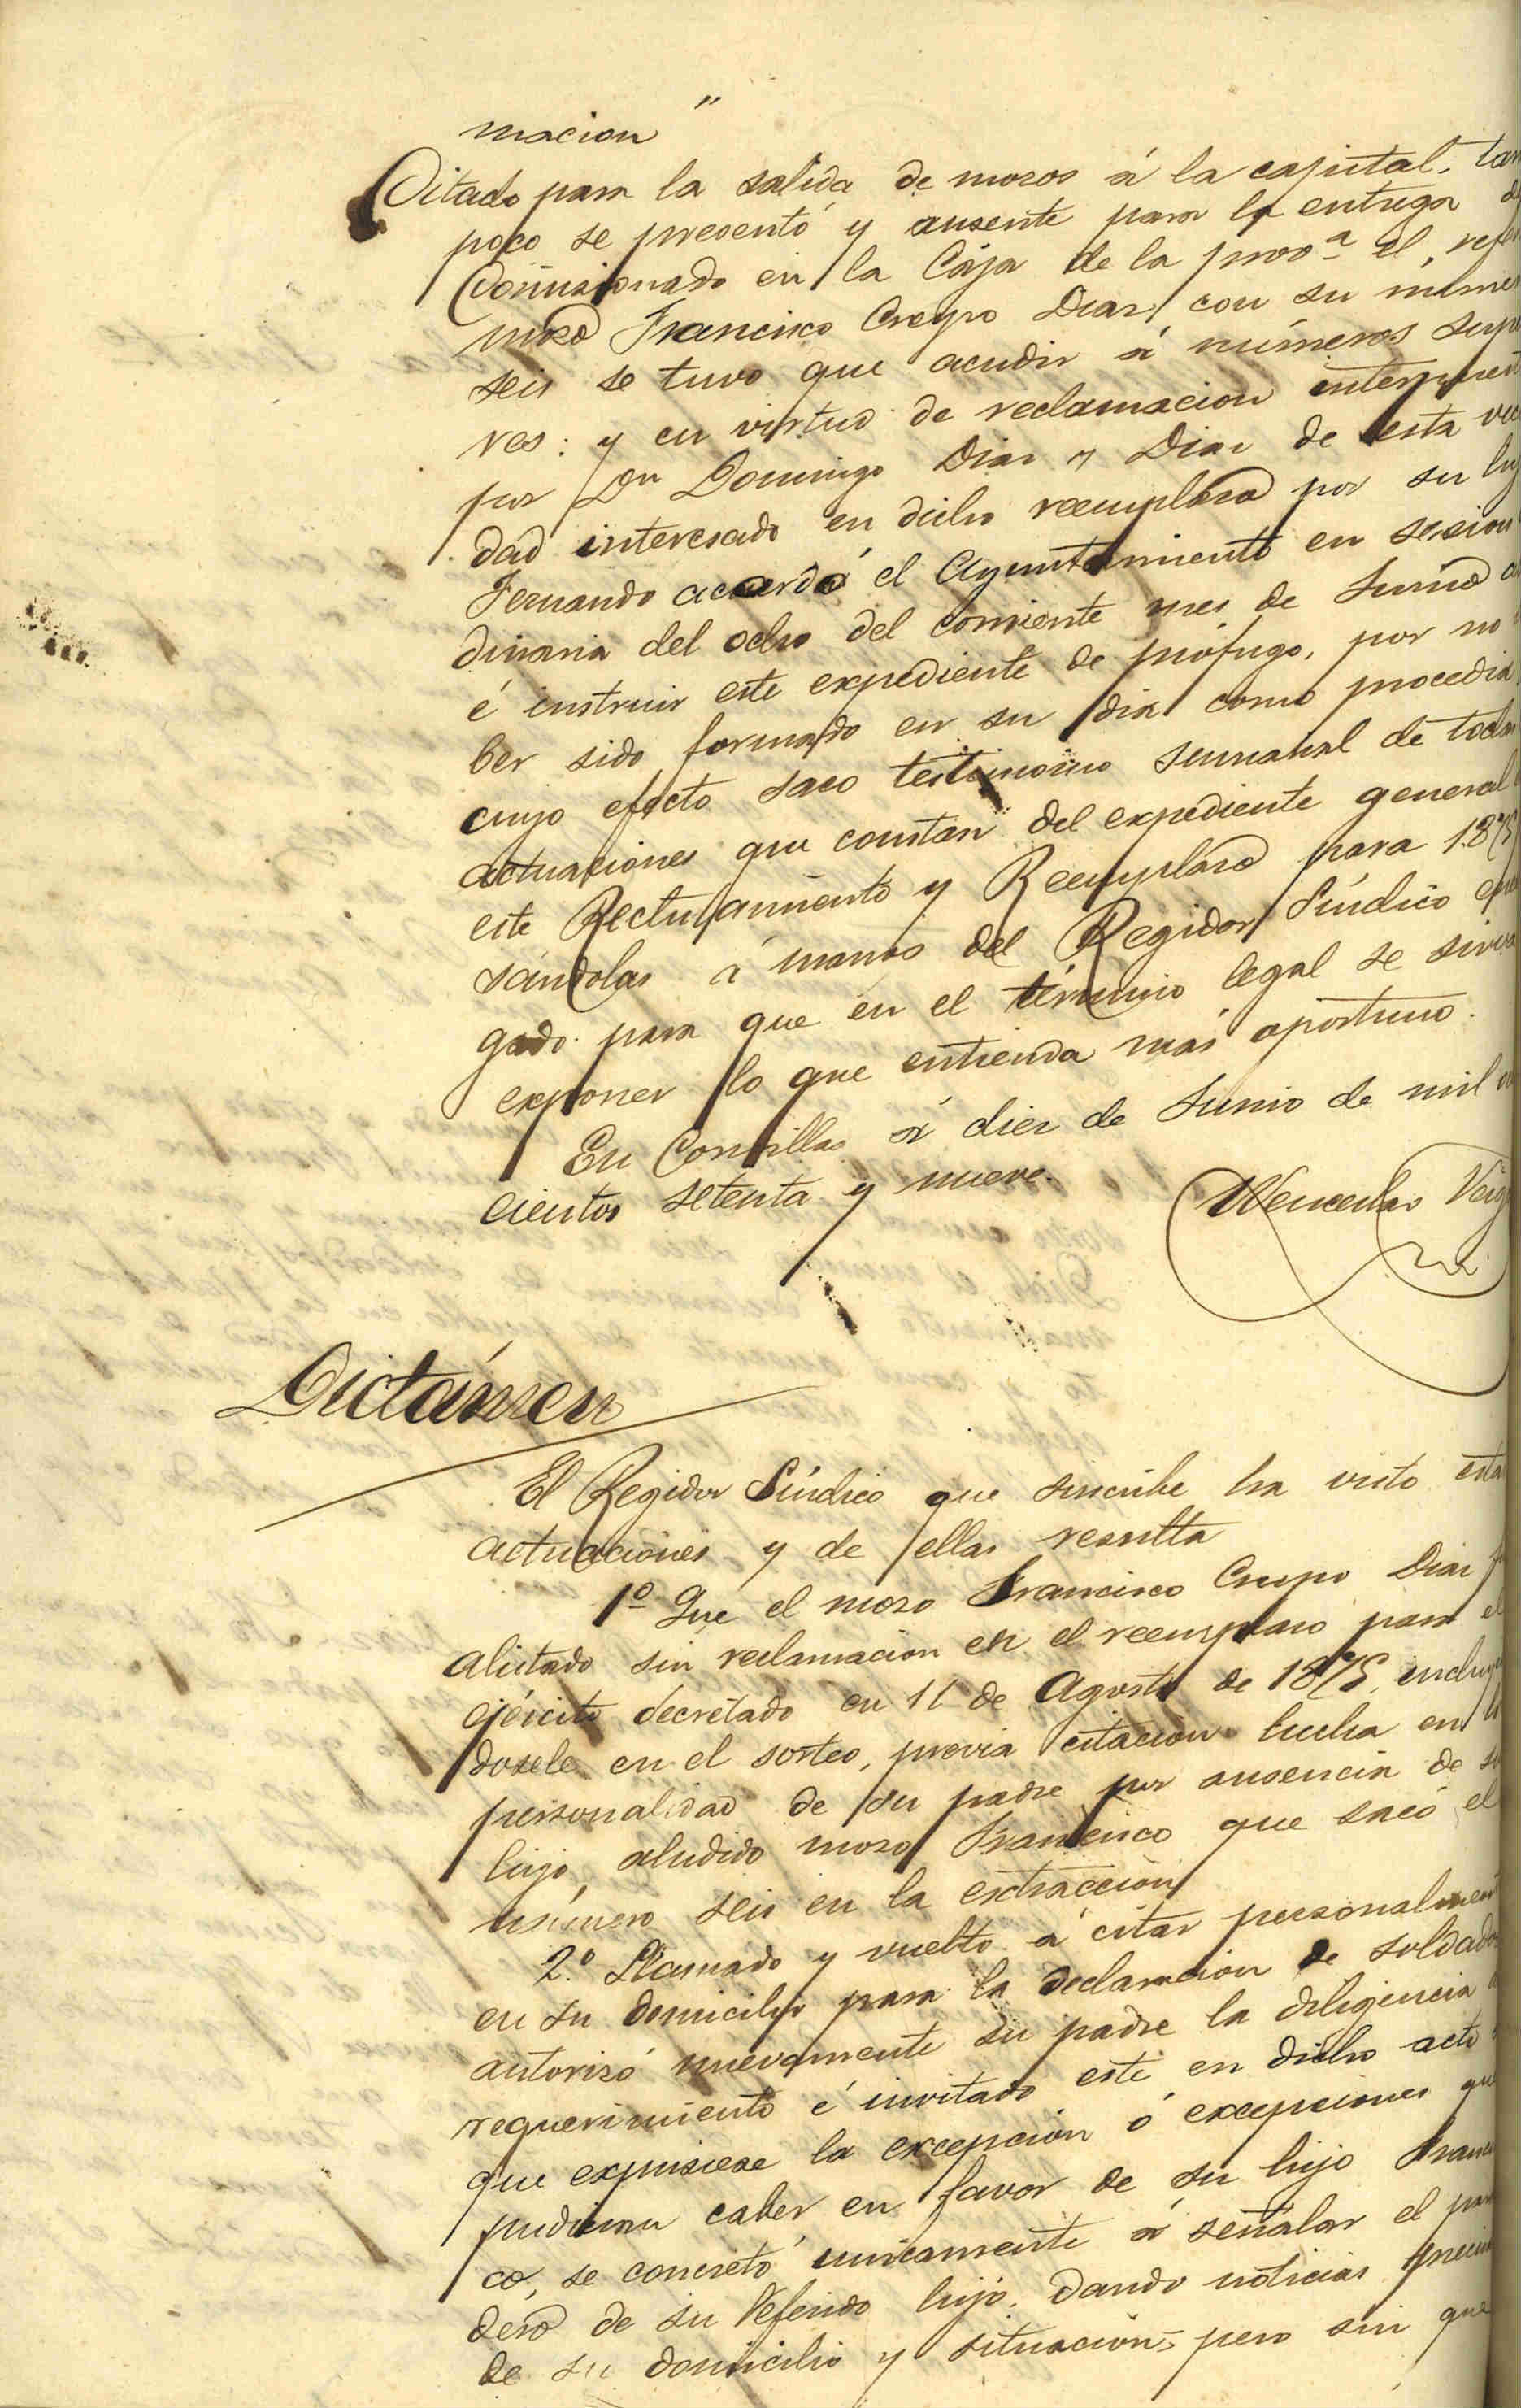 macion"
Citado para la salida de mozos á la capital, tam
poco se presentó y ausente para la entrega del
Comisionado en la Caja de la provª el refer
mozo Francisco Crespo Diaz con su númer
seis se tuvo que acudir á números supe
res: y en virtud de reclamacion interpuest
por Dn Domingo Diaz y Diaz de esta vec
dad interesado en dicho reemplazo por su hij
Fernando acuerda el Ayuntamiento en sesion
dinaria del ocho del corriente mes de Junio
é instruir este expediente de prófugo, por no
ber sido formado en su dia como procedia
cuyo efecto saco testimonio semanal de todas
actuaciones que constan del expediente general
este Reclutamiento y Reemplazo para 1875
sándolas á manos del Regidor Síndico
gado para que en el término legal se sirva
exponer lo que entienda más oportuno.
En Comillas á diez de Junio de mil
cientos setenta y nueve.
Wenceslao Veig
Dictámen
El Regidor Síndico que suscribe ha visto esta
actuaciones y de ellas resulta
1º Que el mozo Francisco Crespo Diaz
alistado sin reclamacion en el reemplazo para el
ejército decretado en 11 de Agosto de 1875, incluyen
dosele en el sorteo, previa citacion hecha en la
personalidad de su padre por ausencia de su
hijo, aludido mozo Francisco que sacó el
número seis en la extraccion
2.º Llamado y vuelto á citar personalment
en su domicilio para la declaracion de soldados
autorizó nuevamente su padre la diligencia
requerimiento é invitado este en dicho acto
que expusiese la excepcion ó excepciones que
pudieran caber en favor de su hijo Francis
co, se concretó unicamente á señalar el para
dero de su referido hijo, dando noticias
de su domicilio y situacion, pero sin que